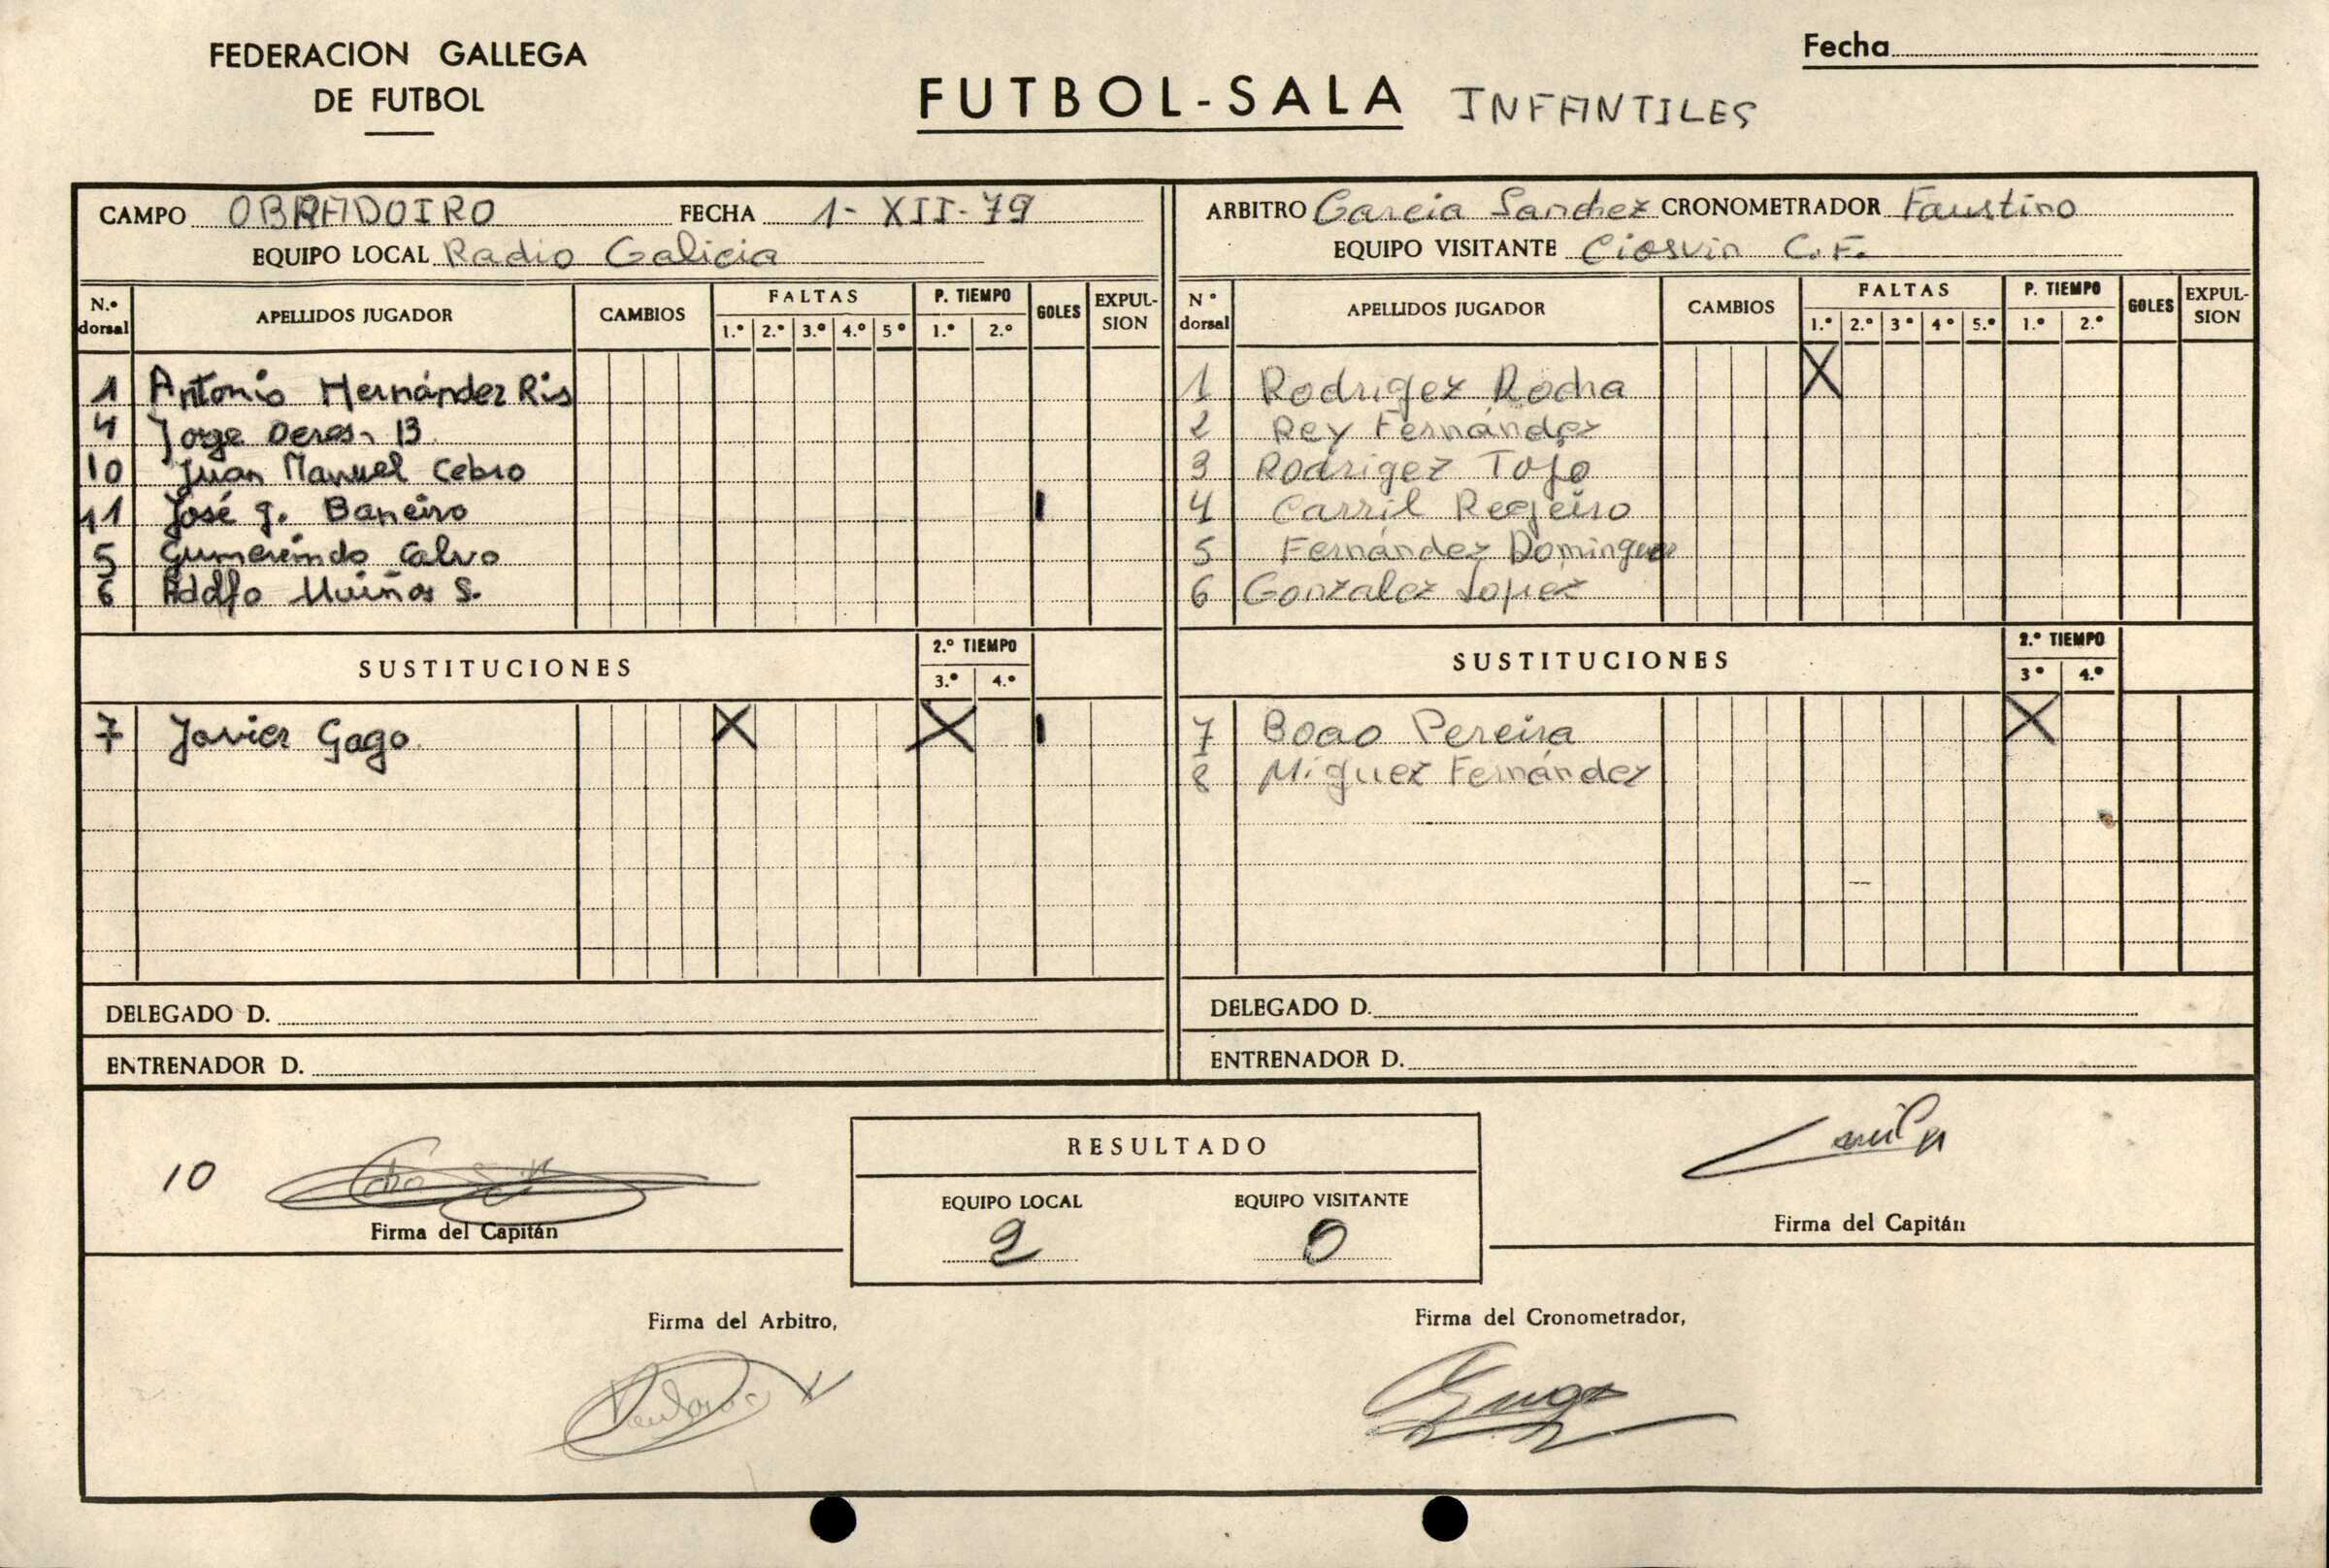 FEDERACION GALLEGA
DE FUTBOL
FUTBOL-SALA INFANTILES
Fecha
CAMPO OBRADOIRO FECHA 1-XII-79
EQUIPO LOCAL Radio Galicia
N.º dorsal APELLIDOS JUGADOR CAMBIOS FALTAS 1.º 2.º 3.º 4.º 5º P. TIEMPO 1.º 2.º GOLES EXPUL-SION
1 Antonio Hernández Ris
4 Jorge B.
10 Juan Manuel Cebro
11 José J. Baneiro
5 Gumersindo Calvo
6 Adolfo Muiños S.
SUSTITUCIONES 2.º TIEMPO 3.º 4.º
7 Javier Gago
DELEGADO D.
ENTRENADOR D.
ARBITRO Garcia Sanchez CRONOMETRADOR Faustino
EQUIPO VISITANTE Ciosvin C.F.
Nº dorsal APELLIDOS JUGADOR CAMBIOS FALTAS 1.º 2.º 3º 4º 5.º P. TIEMPO 1.º 2.º GOLES EXPUL-SION
1 Rodrigez Rocha
2 Rey Fernández
3 Rodrigez Tojo
4 Carril Regeiro
5 Fernández Dominguez
6 Gonzalez Lopez
SUSTITUCIONES 2.º TIEMPO 3º 4.º
7 Boao Pereira
8 Miguez Fernández
DELEGADO D.
ENTRENADOR D.
10
Firma del Capitán
RESULTADO
EQUIPO LOCAL EQUIPO VISITANTE
2 0
Firma del Capitán
Firma del Arbitro,
Firma del Cronometrador,